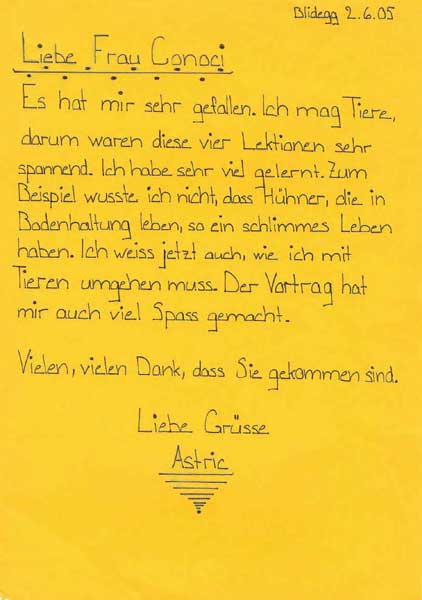 Blidegg 2.6.05
Liebe Frau Conoci
Es hat mir sehr gefallen. Ich mag Tiere,
darum waren diese vier Lektionen sehr
spannend. Ich habe sehr viel gelernt. Zum
Beispiel wusste ich nicht, dass Hühner, die in
Bodenhaltung leben, so ein schlimmes Leben
haben. Ich weiss jetzt auch, wie ich mit
Tieren umgehen muss. Der Vortrag hat
mir auch viel Spass gemacht.
Vielen, vielen Dank, dass Sie gekommen sind.
Liebe Grüsse
Astric